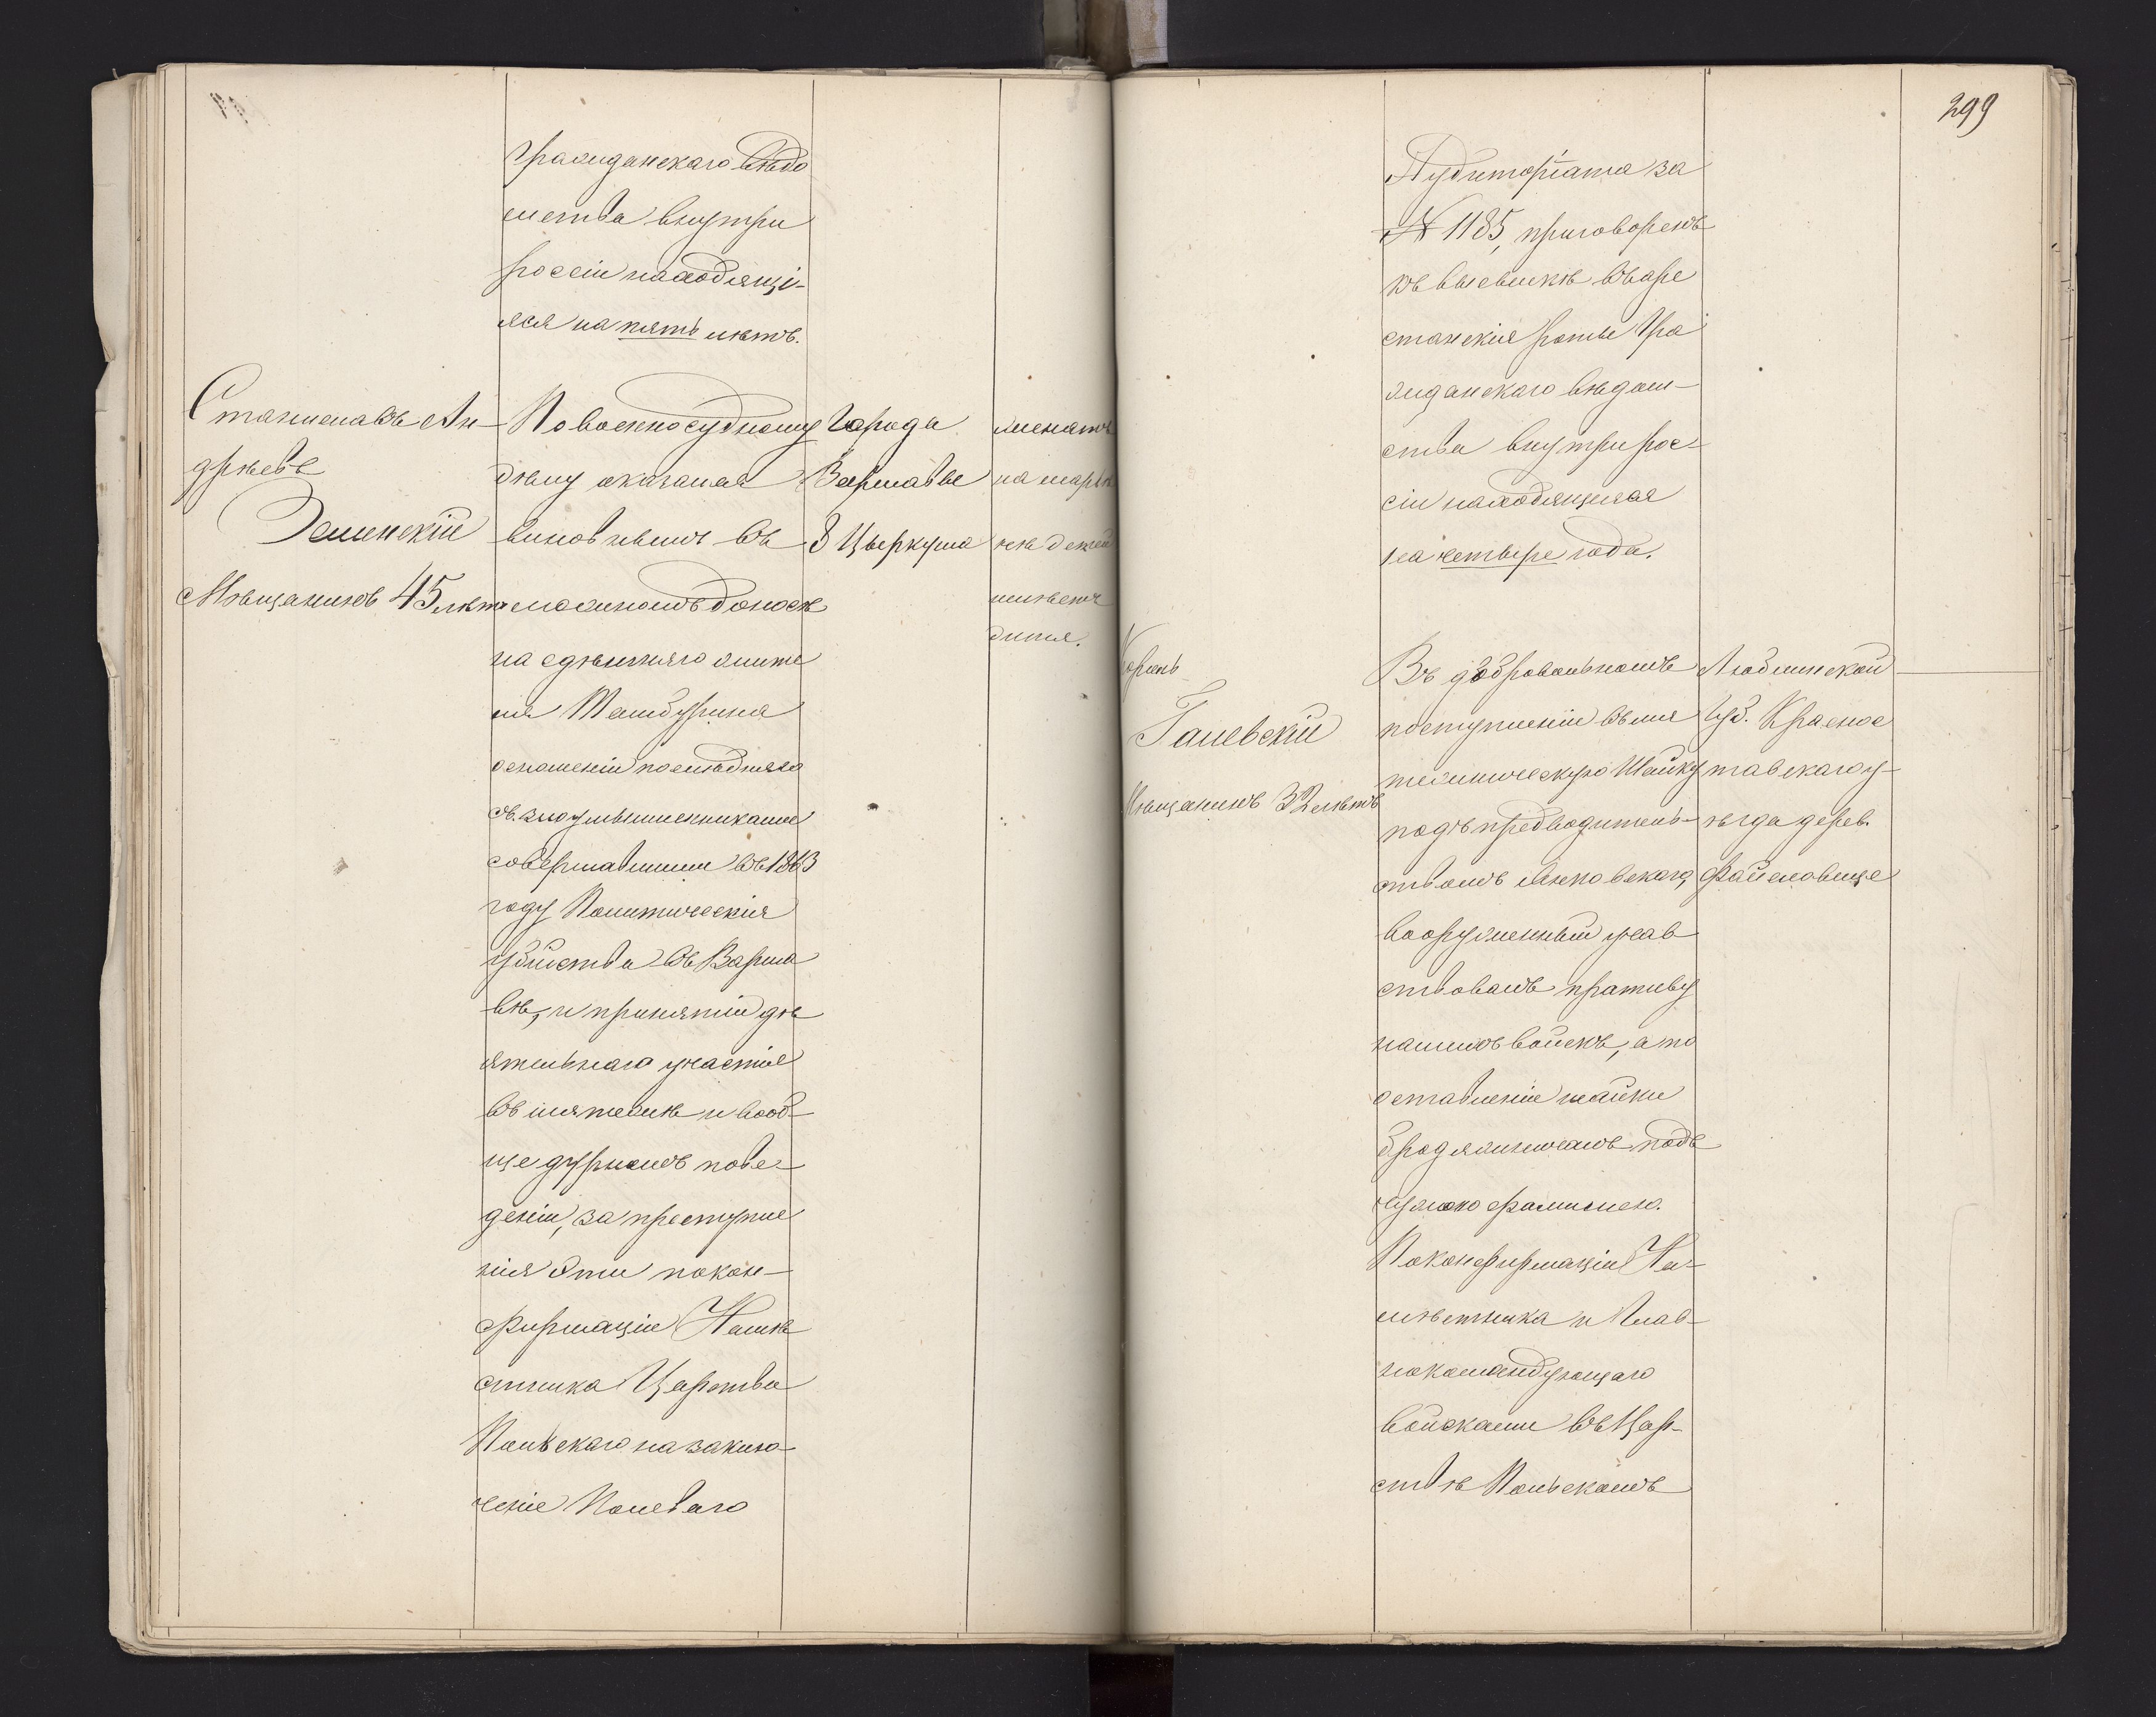 гражданскаго вѣдо
мства внутри
россіи находящі-
яся на пять лѣтъ.
Станиславъ Ан-
дрѣевъ
Зелинскій
Мѣщанинъ 45 лѣтъ
По военно судному
дѣлу оказался
виновнымъ въ
ложномъ доносѣ
на здѣшняго жите
ля Тамбурина
сношеніи послѣдняго
съ злоумышленниками
совершавшими въ 1863
году Политическія
убійства въ Варша
вѣ, и принятіи дѣ
ятельнаго участія
въ мятежѣ и вооб-
ще дурномъ пове-
деніи, за преступле
нія эти по кон-
фирмаціи Намѣ
стника Царства
Польскаго на заклю-
ченіе Полеваго
Города
Варшавы
8 Цыркула
женатъ
на
дѣтей
имѣетъ
дитя.
299
Аудиторіата за
№ 1185, приговоренъ
къ высылкѣ въ аре
станскія роты Гра
жданскаго вѣдом-
ства внутри рос-
сіи находящіяся
на четыре года.
Гаевскій
Мѣщанинъ 32 лѣтъ
Въ добровольномъ
поступленіи въ мя
тежническую Шайку
подъ предводитель-
ствомъ
вооруженный учав
ствовалъ противу
нашихъ войскъ, а по
оставленіи шайки
бродяжничалъ подъ
чужою фамиліею.
По конфирмаціи На-
мѣстника и Глав-
нокомандующаго
войсками въ Цар-
ствѣ Польскомъ
Люблинской
Губ. Красно
ставскаго у-
ѣзда дерев.
Файсловице